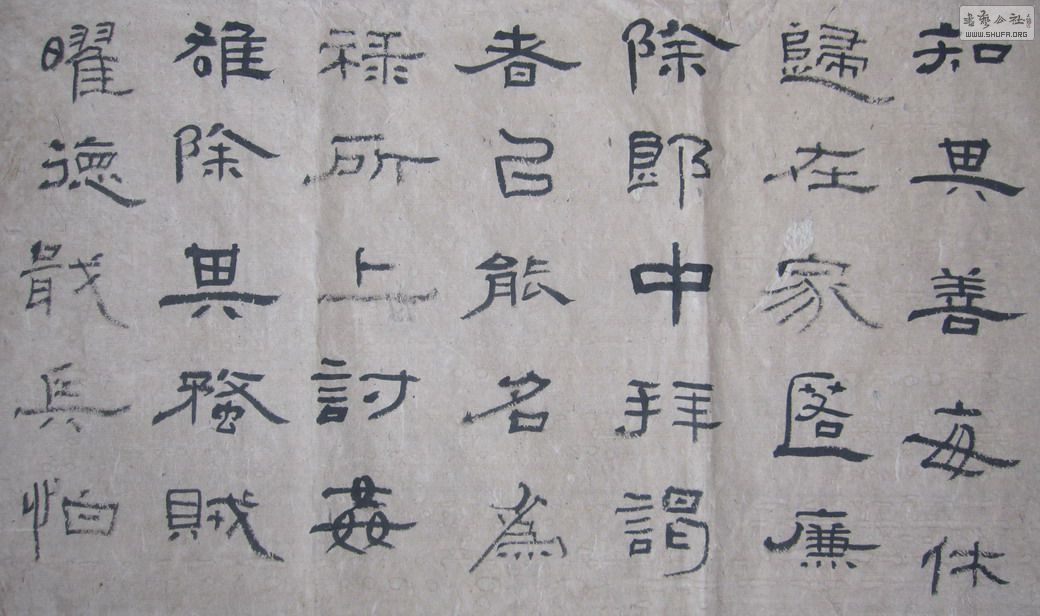 知其善每休
歸在家匿廉
除郎中拜謁
者㠯能名為
祿所上討姦
雄除其蝥賊
曜德戢兵怕
書藝公社
WWW.SHUFA.ORG